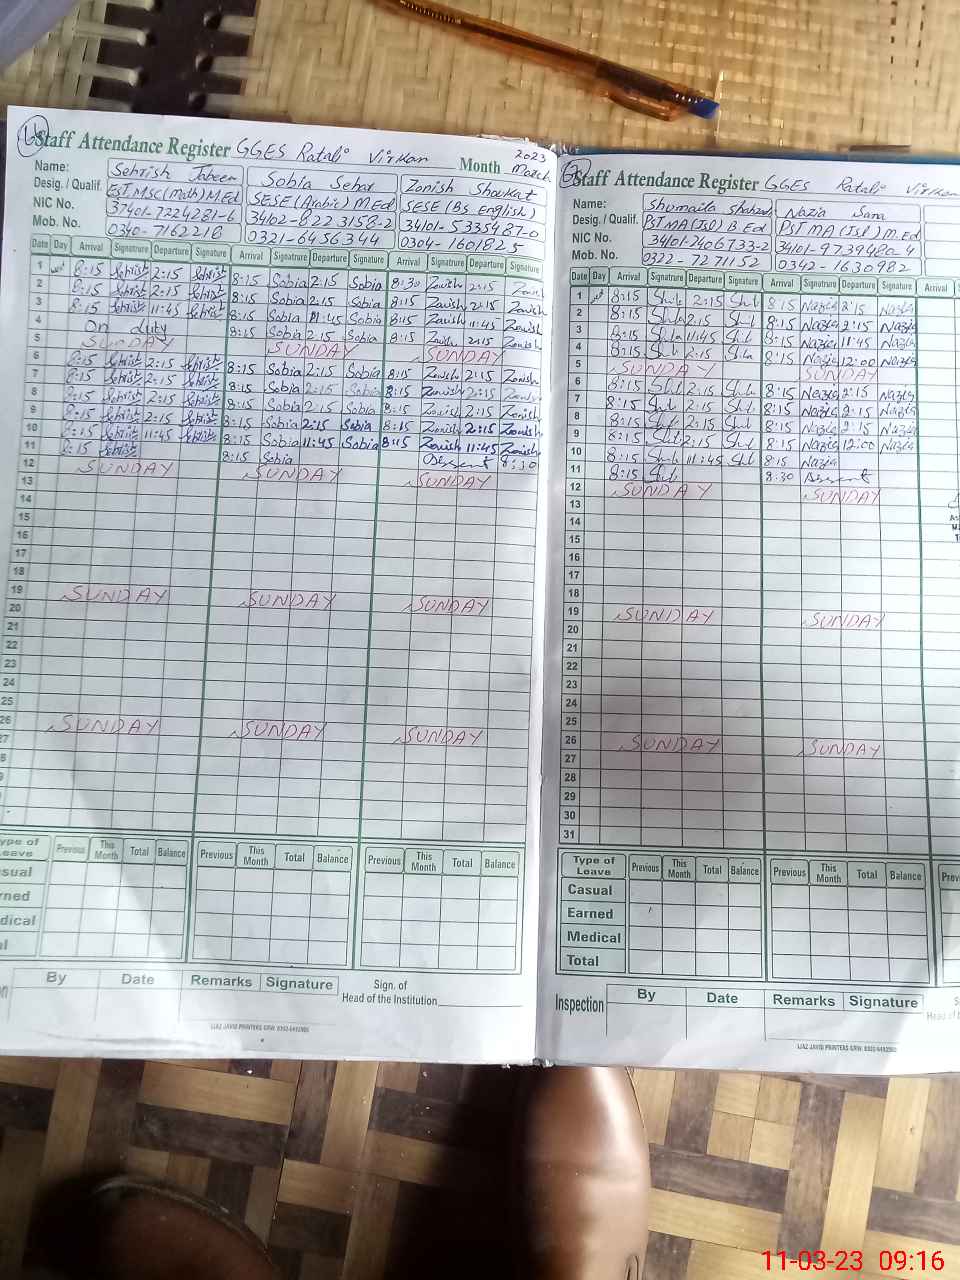 Staff Attendance Register GGES Ratali Virkan Month March 2023
Name: Sehrish Jabeen Sobia Sehar Zonish Shoukat
Desig. / Qualif. EST MSc (Math) M.Ed SESE (Arabic) M.Ed SESE (Bs English)
NIC No. 37401-7224281-6 34102-8223158-2 34101-5335487-0
Mob. No. 0340-7162218 0321-6456344 0304-1601825
Date Day Arrival Signature Departure Signature Arrival Signature Departure Signature Arrival Signature Departure Signature
1 8:15 2:15 8:15 Sobia 2:15 Sobia 8:30 2:15
2 8:15 2:15 8:15 Sobia 2:15 Sobia 8:15 2:15
3 8:15 11:45 8:15 Sobia 11:45 Sobia 8:15 11:45
4 On duty 8:15 Sobia 2:15 Sobia 8:15 2:15
5 SUNDAY SUNDAY SUNDAY
6 8:15 2:15 8:15 Sobia 2:15 Sobia 8:15 2:15 Zonish
7 8:15 2:15 8:15 Sobia 2:15 Sobia 8:15 2:15
8 8:15 2:15 8:15 Sobia 2:15 Sobia 8:15 2:15 Zonish
9 8:15 2:15 8:15 Sobia 2:15 Sobia 8:15 Zonish 2:15 Zonish
10 8:15 11:45 8:15 Sobia 11:45 Sobia 8:15 Zonish 11:45 Zonish
11 8:15 8:15 Sobia 8:30
12 SUNDAY SUNDAY SUNDAY
13
14
15
16
17
18
19 SUNDAY SUNDAY SUNDAY
20
21
22
23
24
25
26 SUNDAY SUNDAY SUNDAY
27
Type of Leave Previous This Month Total Balance Previous This Month Total Balance Previous This Month Total Balance
By Date Remarks Signature Sign. of Head of the Institution
IJAZ JAVID PRINTERS GRW.
Staff Attendance Register GGES Ratali Virkan
Name: Shumaila Shahzad Nazia Sana
Desig. / Qualif. PST MA (Isl) B.Ed PST MA (Isl) M.Ed
NIC No. 34101-7406733-2 34101-9739480-4
Mob. No. 0322-7271152 0342-1630982
Date Day Arrival Signature Departure Signature Arrival Signature Departure Signature Arrival
1 8:15 2:15 8:15 Nazia 2:15 Nazia
2 8:15 2:15 8:15 Nazia 2:15 Nazia
3 8:15 11:45 8:15 Nazia 11:45 Nazia
4 8:15 2:15 8:15 Nazia 12:00 Nazia
5 SUNDAY SUNDAY
6 8:15 2:15 8:15 Nazia 2:15 Nazia
7 8:15 2:15 8:15 Nazia 2:15 Nazia
8 8:15 2:15 8:15 Nazia 2:15 Nazia
9 8:15 2:15 8:15 Nazia 12:00 Nazia
10 8:15 11:45 8:15 Nazia
11 8:15 8:30
12 SUNDAY SUNDAY
13
14
15
16
17
18
19 SUNDAY SUNDAY
20
21
22
23
24
25
26 SUNDAY SUNDAY
27
28
29
30
31
Type of Leave Previous This Month Total Balance Previous This Month Total Balance
Casual
Earned
Medical
Total
Inspection By Date Remarks Signature
IJAZ JAVID PRINTERS GRW.
11-03-23 09:16